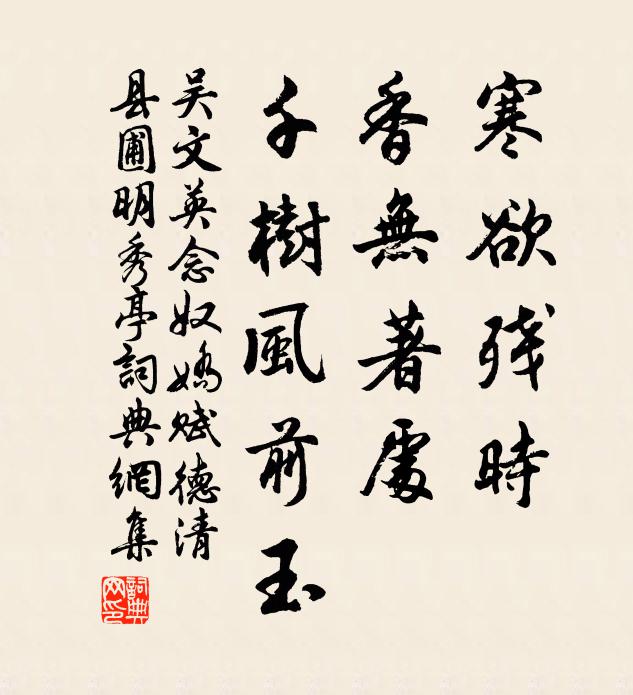 寒欲残時
香無著處
千樹風前玉
吴文英念奴嬌賦德清
县圃明秀亭詞典網集
詞典網印